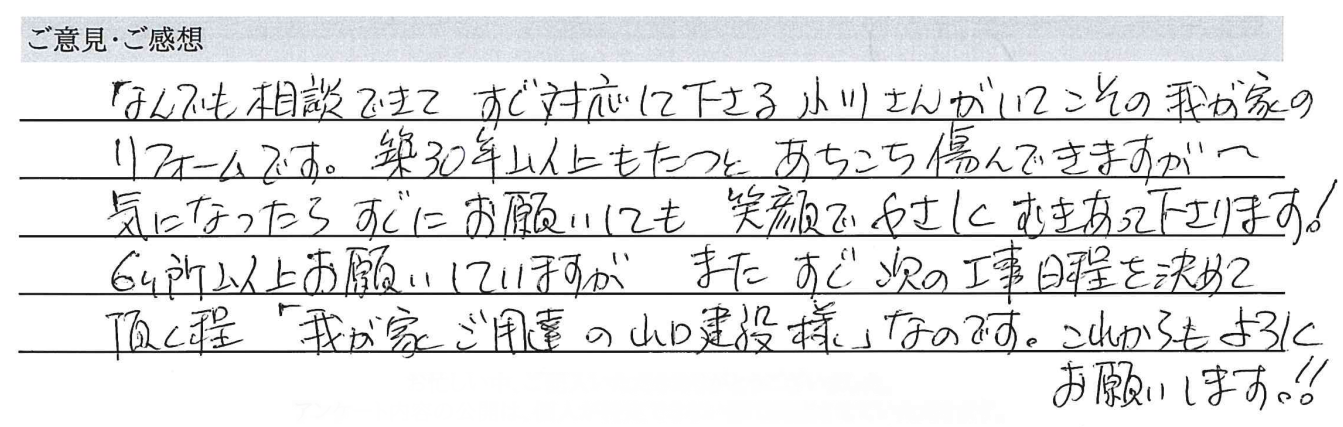 ご意見・ご感想
「なんでも相談できて すぐ対応して下さる 小川さんがいてこその 我が家の
リフォームです。築30年以上もたつと あちこち傷んできますが〜
気になったら すぐに お願いしても 笑顔で やさしく むきあって下さります!
6ヶ所以上お願いしていますが また すぐ 次の工事日程を決めて
頂く程 「我が家ご用達の山口建設様」なのです。これからもよろしく
お願いします。!!